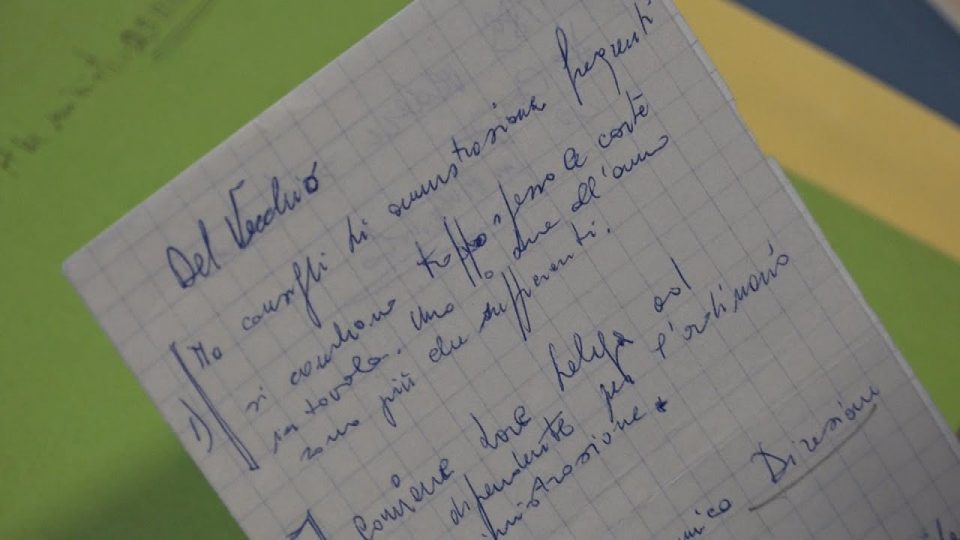 Del Vecchio
1) No consigli di amnistrazione frequenti
si cambiano troppo spesso le carte
in tavola. Uno o due all'anno
sono più che sufficienti.
Conviene dare delega ad
dipendente per l'ordinario
nistrazione
Direzione